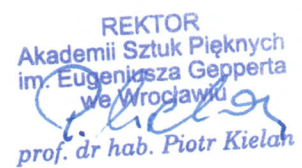 REKTOR
Akademii Sztuk Pięknych
im. Eugeniusza Gepperta
we Wrocławiu
prof. dr hab. Piotr Kielan